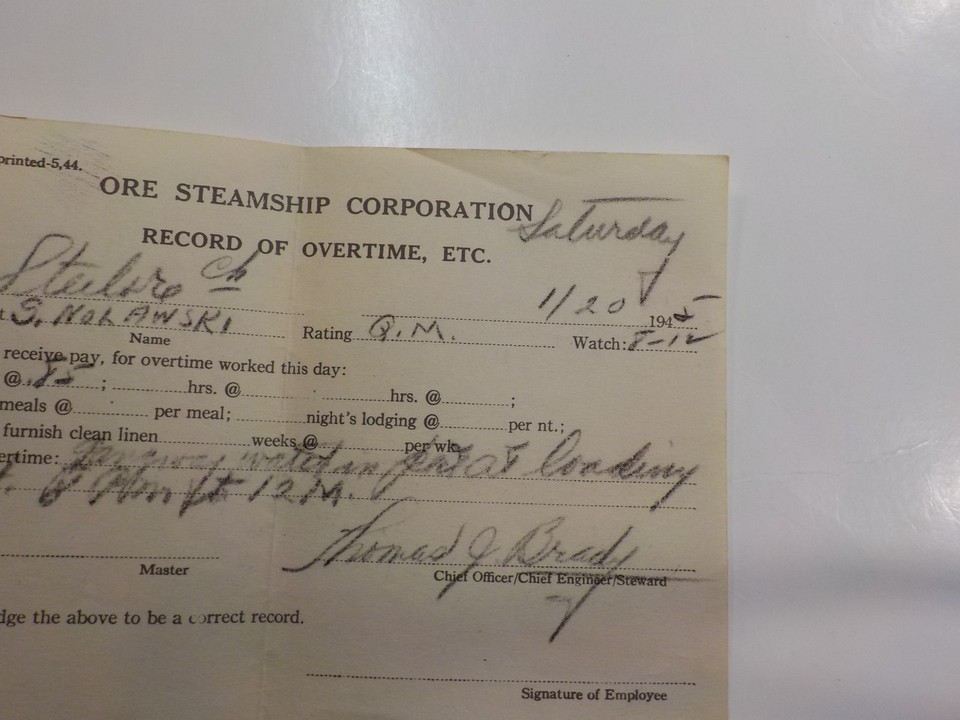 printed-5,44.
ORE STEAMSHIP CORPORATION
Saturday
RECORD OF OVERTIME, ETC.
Steelore
1/20 1945
S. NOLAWSKI Rating Q.M. Watch: 8-12
Name
receive pay, for overtime worked this day:
@ .85 ; hrs. @ hrs. @ ;
meals @ per meal; night's lodging @ per nt.;
furnish clean linen weeks @ per wk.
ertime: Gangway watch in port at loading
12 M.
Thomas J. Brady
Master Chief Officer/Chief Engineer/Steward
dge the above to be a correct record.
Signature of Employee